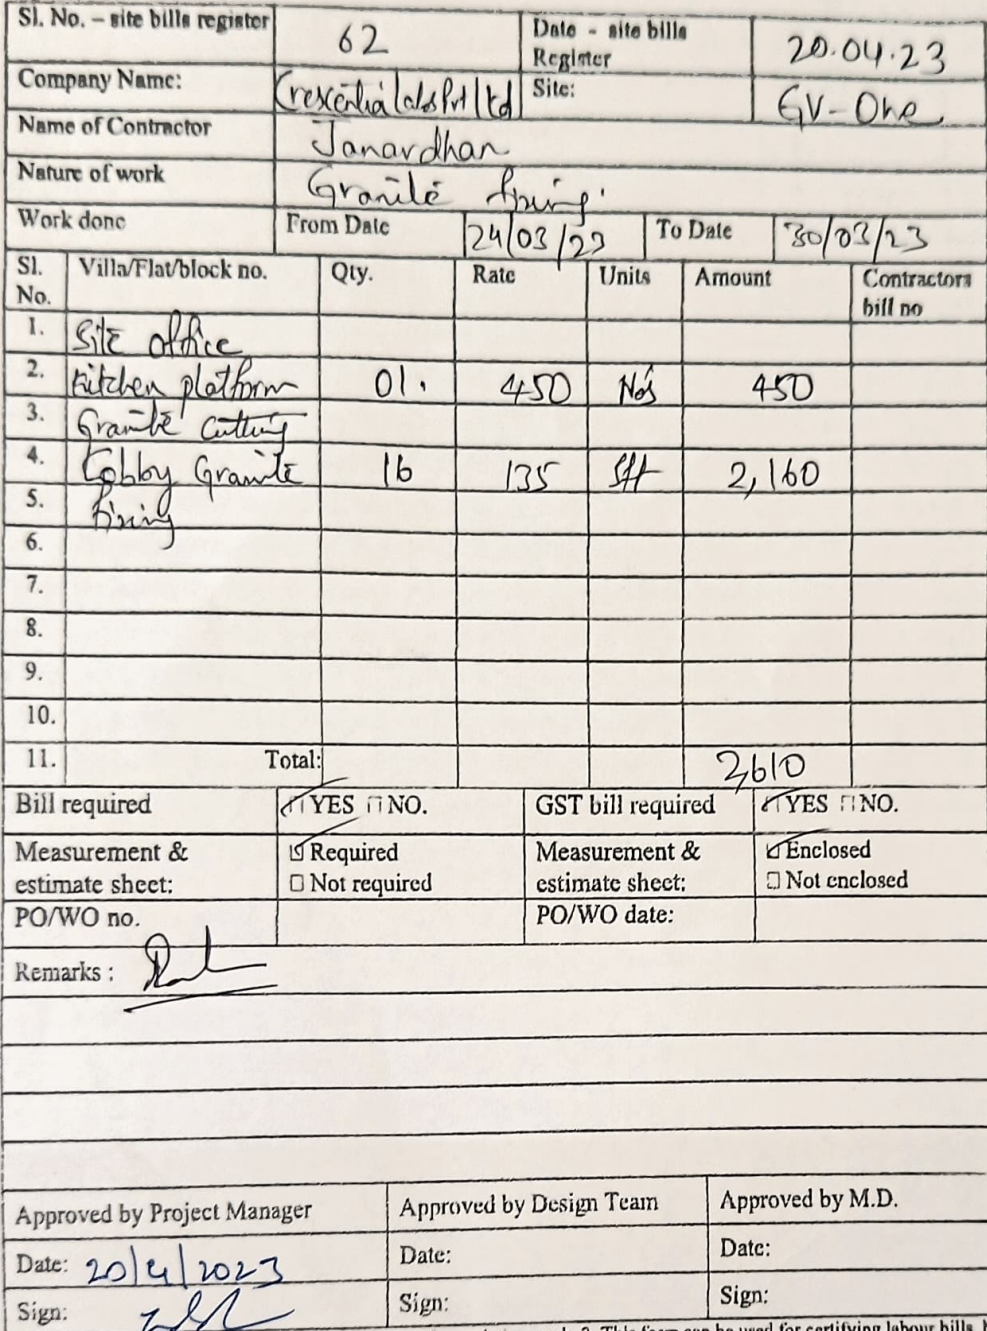 Sl. No. – site bills register 62 Date - site bills Register 20.04.23
Company Name: Crexentia labs Pvt Ltd Site: GV-One
Name of Contractor Janardhan
Nature of work Granite fixing
Work done From Date 24/03/23 To Date 30/03/23
Sl. No. Villa/Flat/block no. Qty. Rate Units Amount Contractors bill no
1. Site office
2. Kitchen platform 01. 450 Nos 450
3. Granite cutting
4. Lobby Granite 16 135 Sft 2,160
5. fixing
6.
7.
8.
9.
10.
11. Total: 2,610
Bill required YES NO. GST bill required YES NO.
Measurement & estimate sheet: Required Measurement & estimate sheet: Enclosed
Not required Not enclosed
PO/WO no. PO/WO date:
Remarks :
Approved by Project Manager Approved by Design Team Approved by M.D.
Date: 20/4/2023 Date: Date:
Sign: Sign: Sign: